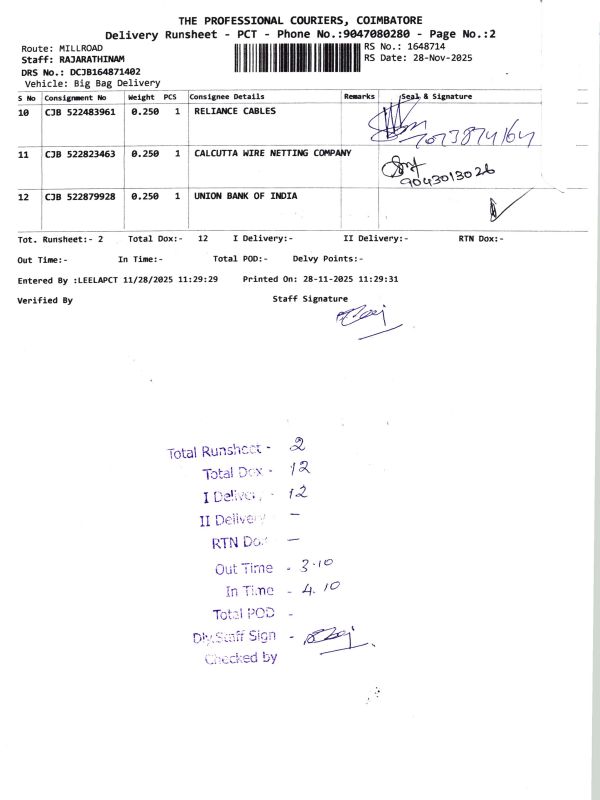 THE PROFESSIONAL COURIERS, COIMBATORE
Delivery Runsheet - PCT - Phone No.:9047080280 - Page No.:2
Route: MILLROAD
Staff: RAJARATHINAM
DRS No.: DCJB164871402
Vehicle: Big Bag Delivery
RS No.: 1648714
RS Date: 28-Nov-2025
S No Consignment No Weight PCS Consignee Details Remarks Seal & Signature
10 CJB 522483961 0.250 1 RELIANCE CABLES
11 CJB 522823463 0.250 1 CALCUTTA WIRE NETTING COMPANY
9043013026
12 CJB 522879928 0.250 1 UNION BANK OF INDIA
Tot. Runsheet:- 2 Total Dox:- 12 I Delivery:- II Delivery:- RTN Dox:-
Out Time:- In Time:- Total POD:- Delvy Points:-
Entered By :LEELAPCT 11/28/2025 11:29:29 Printed On: 28-11-2025 11:29:31
Verified By Staff Signature
Total Runsheet - 2
Total Dox - 12
I Delivery - 12
II Delivery -
RTN Dox -
Out Time - 3.10
In Time - 4.10
Total POD -
Dly.Staff Sign -
Checked by